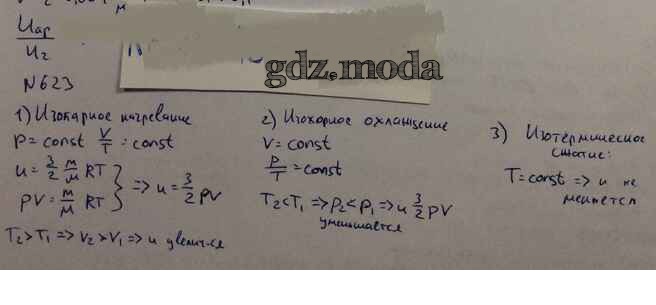 Uар
U2
gdz.moda
N623
1) Изобарное нагревание
P = const V/T = const
u = 3/2 m/M RT
pV = m/M RT } => u = 3/2 pV
T2 > T1 => V2 > V1 => u увелич-ся
2) Изохорное охлаждение
V = const
P/T = const
T2 < T1 => p2 < p1 => u 3/2 pV
уменьшается
3) Изотермическое
сжатие:
T = const => u не
меняется